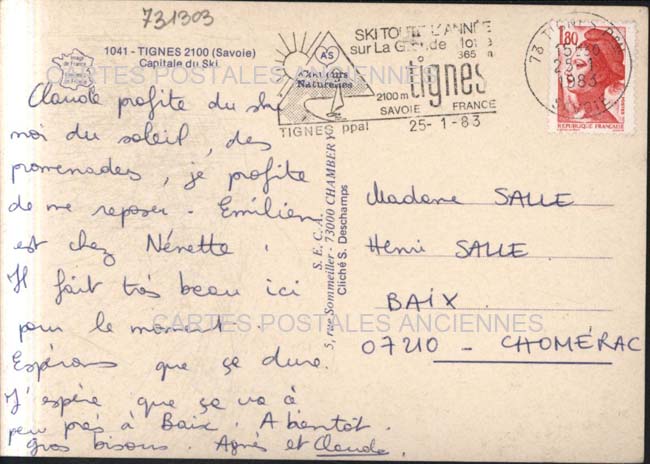 731303
1041 - TIGNES 2100 (Savoie)
Capitale du Ski
Image de France
CARTES POSTALES ANCIENNES
SKI TOUTE L'ANNÉE
sur La Grande Motte
3656 m
AS
Couleurs
Naturelles
tignes
2100 m
SAVOIE FRANCE
TIGNES ppal 25-1-83
73 TIGNES PPAL
25-1
1983
SAVOIE
1,80
REPUBLIQUE FRANCAISE
Claude profite du ski
moi du soleil, des
promenades, je profite
de me reposer. Emilien
est chez Nénette.
Il fait très beau ici
pour le moment.
Espérons que ça dure.
J'espère que ça va à
peu près à Baix. A bientôt.
Gros bisous. Agnès et Claude.
S.E.C.A.
5, rue Sommeiller - 73000 CHAMBERY
Cliché S. Deschamps
Madame SALLE
Henri SALLE
BAIX
07210 - CHOMÉRAC
CARTES POSTALES ANCIENNES